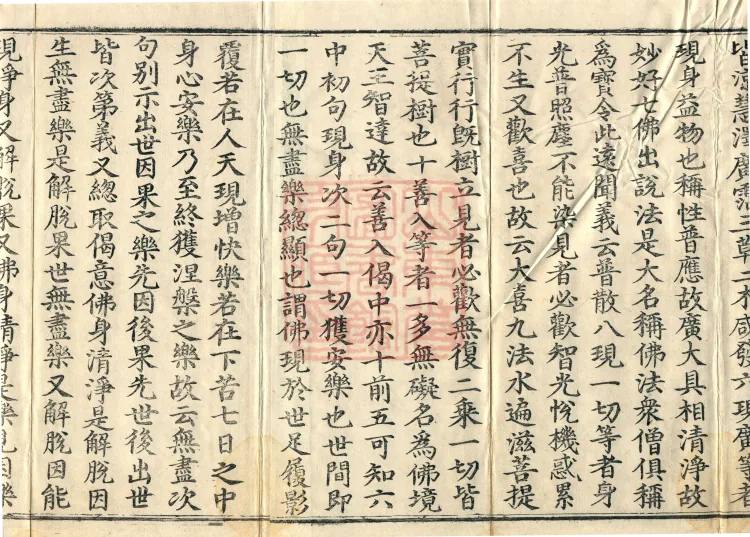 皆
現身益物也稱性普應故廣大具相清淨故
妙好七佛出說法是大名稱佛法衆僧俱稱
為寶令此遠聞義云普散八現一切等者身
光普照塵不能染見者必歡智光悅機惑累
不生又歡喜也故云大喜九法水遍滋菩提
實行行旣樹立見者必歡無復二乘一切皆
菩提樹也十善入等者一多無礙名為佛境
天王智達故云善入偈中亦十前五可知六
中初句現身次二句一切獲安樂也世間即
一切也無盡樂總顯也謂佛現於世足履影
覆若在人天現增快樂若在下苦七日之中
身心安樂乃至終獲涅槃之樂故云無盡次
句別示出世因果之樂先因後果先世後出世
皆次第義又總取偈意佛身清淨是解脫因
生無盡樂是解脫果世無盡樂又解脫因能
現淨身又解脫果又佛身清淨是樂見因樂